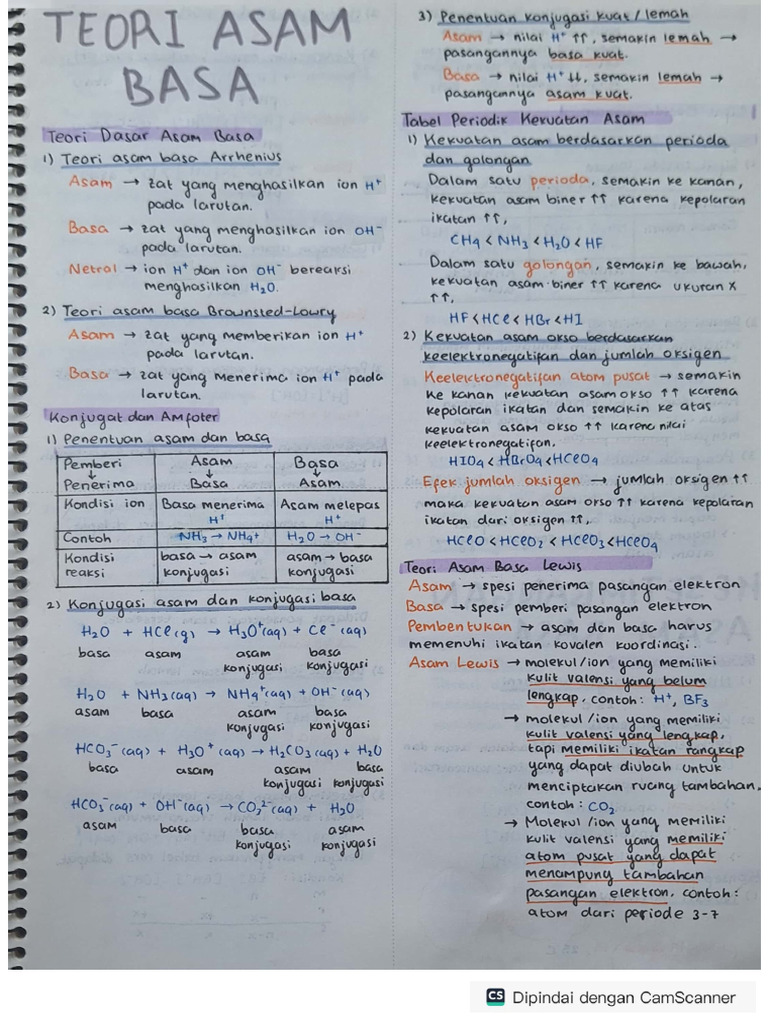 TEORI ASAM
BASA
Teori Dasar Asam Basa
1) Teori asam basa Arrhenius
Asam → zat yang menghasilkan ion H⁺
pada larutan.
Basa → zat yang menghasilkan ion OH⁻
pada larutan.
Netral → ion H⁺ dan ion OH⁻ bereaksi
menghasilkan H₂O.
2) Teori asam basa Brownsted-Lowry
Asam → zat yang memberikan ion H⁺
pada larutan.
Basa → zat yang menerima ion H⁺ pada
larutan.
Konjugat dan Amfoter
1) Penentuan asam dan basa
Pemberi ↓ Penerima | Asam ↓ Basa | Basa ↓ Asam
Kondisi ion | Basa menerima H⁺ | Asam melepas H⁺
Contoh | NH₃ → NH₄⁺ | H₂O → OH⁻
Kondisi reaksi | basa → asam konjugasi | asam → basa konjugasi
2) Konjugasi asam dan konjugasi basa
H₂O + HCl(g) → H₃O⁺(aq) + Cl⁻(aq)
basa asam asam konjugasi basa konjugasi
H₂O + NH₃(aq) → NH₄⁺(aq) + OH⁻(aq)
asam basa asam konjugasi basa konjugasi
HCO₃⁻(aq) + H₃O⁺(aq) → H₂CO₃(aq) + H₂O
basa asam asam konjugasi basa konjugasi
HCO₃⁻(aq) + OH⁻(aq) → CO₃²⁻(aq) + H₂O
asam basa basa konjugasi asam konjugasi
3) Penentuan konjugasi kuat/lemah
Asam → nilai H⁺ ↑↑, semakin lemah →
pasangannya basa kuat.
Basa → nilai H⁺ ↓↓, semakin lemah →
pasangannya asam kuat.
Tabel Periodik Kekuatan Asam
1) Kekuatan asam berdasarkan perioda
dan golongan
Dalam satu perioda, semakin ke kanan,
kekuatan asam biner ↑↑ karena kepolaran
ikatan ↑↑,
CH₄ < NH₃ < H₂O < HF
Dalam satu golongan, semakin ke bawah,
kekuatan asam biner ↑↑ karena ukuran X
↑↑,
HF < HCl < HBr < HI
2) Kekuatan asam okso berdasarkan
keelektronegatifan dan jumlah oksigen
Keelektronegatifan atom pusat → semakin
ke kanan kekuatan asam okso ↑↑ karena
kepolaran ikatan dan semakin ke atas
kekuatan asam okso ↑↑ karena nilai
keelektronegatifan,
HIO₄ < HBrO₄ < HClO₄
Efek jumlah oksigen → jumlah oksigen ↑↑
maka kekuatan asam okso ↑↑ karena kepolaran
ikatan dari oksigen ↑↑,
HClO < HClO₂ < HClO₃ < HClO₄
Teori Asam Basa Lewis
Asam → spesi penerima pasangan elektron
Basa → spesi pemberi pasangan elektron
Pembentukan → asam dan basa harus
memenuhi ikatan kovalen koordinasi.
Asam Lewis → molekul/ion yang memiliki
kulit valensi yang belum
lengkap, contoh: H⁺, BF₃
→ molekul/ion yang memiliki
kulit valensi yang lengkap,
tapi memiliki ikatan rangkap
yang dapat diubah untuk
menciptakan ruang tambahan,
contoh: CO₂
→ Molekul/ion yang memiliki
kulit valensi yang memiliki
atom pusat yang dapat
menampung tambahan
pasangan elektron, contoh:
atom dari periode 3-7
CS Dipindai dengan CamScanner